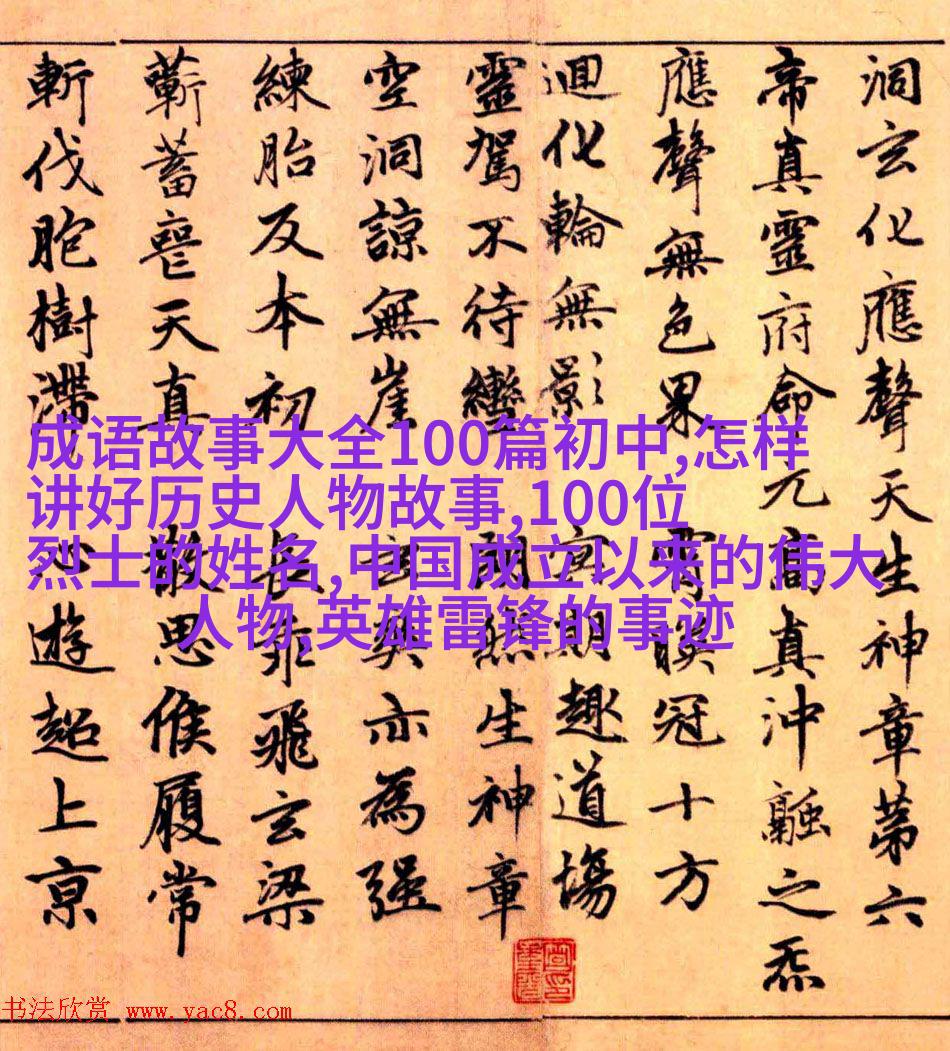 洞玄化應聲天生神章苐六
帝真靈府命元高真沖融之炁
應聲無色界 霄映冠十方
迴化輪無影 冥期趣道場
靈駕不待轡 生神章
空洞諒無崖 玄爽亦為强
練胎反本初 長乖飛玄梁
蘄蓄喪天真 散思候履常
斬伐胞樹滯 心遊超上京
成语故事大全100篇初中,怎样
讲好历史人物故事,100位
烈士的姓名,中国成立以来的伟大
人物,英雄雷锋的事迹
书法欣赏 www.yac8.com